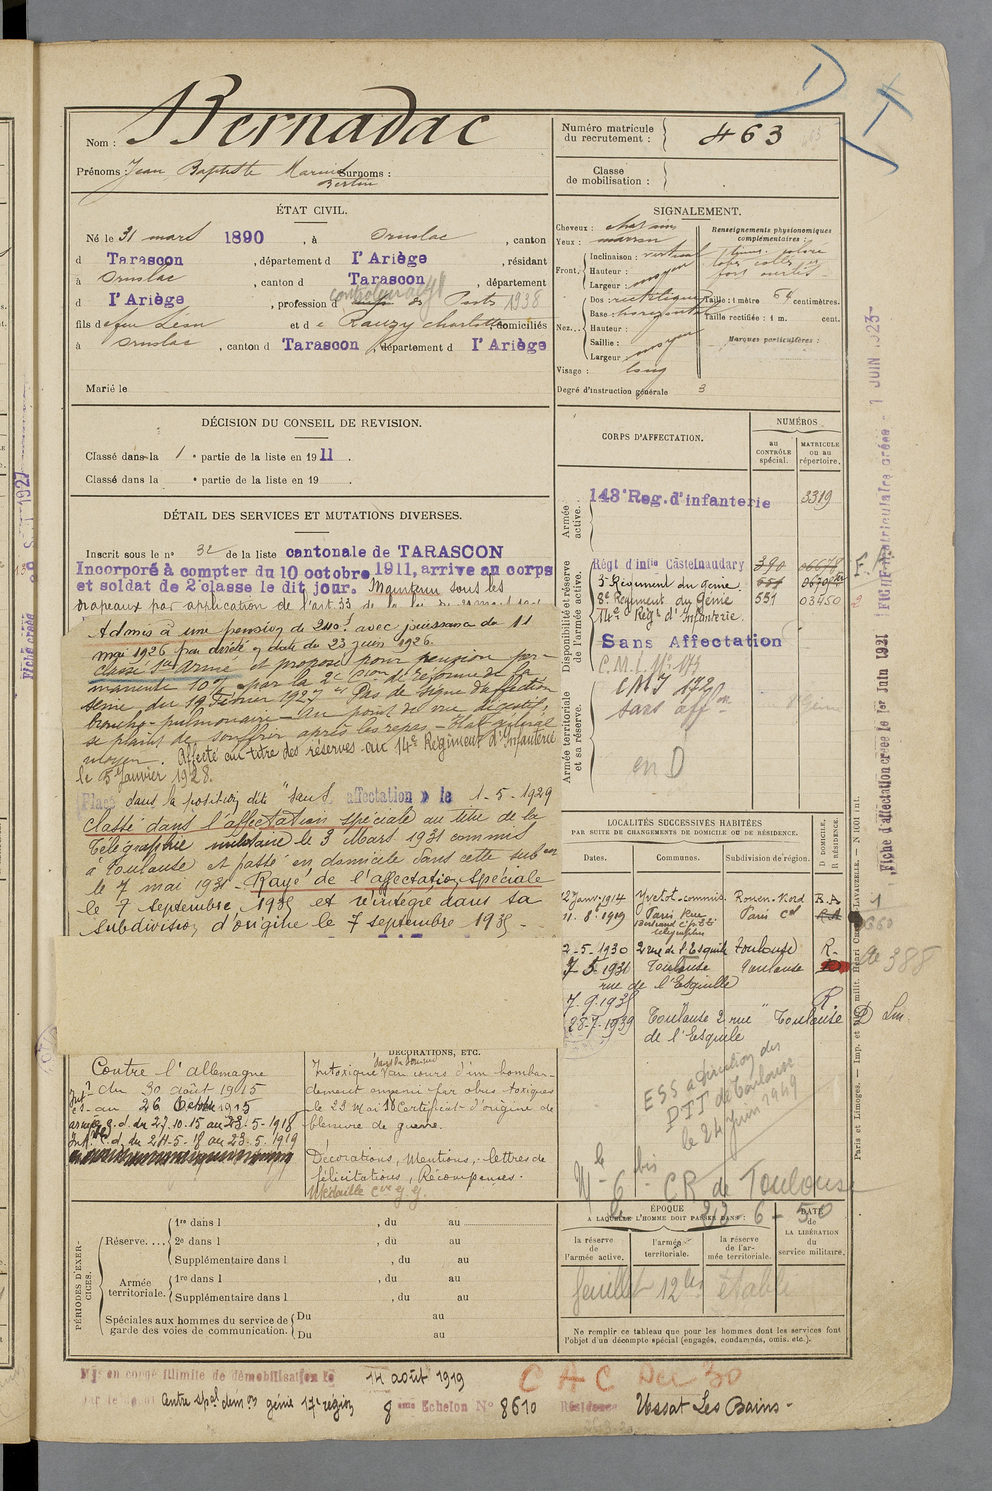 Nom : Bernadac
Prénoms Jean Baptiste Marius Surnoms :
Bertin
Numéro matricule du recrutement : 463
Classe de mobilisation :
ÉTAT CIVIL.
Né le 31 mars 1890, à Ornolac, canton
d Tarascon, département d l'Ariège, résidant
à Ornolac, canton d Tarascon, département
d l'Ariège, profession d des Ponts 1938
fils de feu Léon et de Rauzy Charlotte, domiciliés
à Ornolac, canton d Tarascon, département d l'Ariège
Marié le
SIGNALEMENT.
Cheveux : chatains
Yeux : marron
Inclinaison : vertical
Front. Hauteur : moyen
Largeur : moyen
Dos : rectiligne
Base : horizontal
Nez... Hauteur :
Saillie :
Largeur : moyen
Visage : long
Degré d'instruction générale 3
Renseignements physionomiques complémentaires :
Taille : 1 mètre 64 centimètres.
Taille rectifiée : 1 m. cent.
Marques particulières :
DÉCISION DU CONSEIL DE REVISION.
Classé dans la 1e partie de la liste en 1911.
Classé dans la e partie de la liste en 19 .
DÉTAIL DES SERVICES ET MUTATIONS DIVERSES.
Inscrit sous le n° 32 de la liste cantonale de TARASCON
Incorporé à compter du 10 octobre 1911, arrive au corps
et soldat de 2e classe le dit jour. Maintenu sous les
drapeaux par application de l'art. 33
Admis à une pension de 240f avec jouissance du 11
mai 1926 par arrêté en date du 23 juin 1926.
classé sce armé et proposé pour pension per-
manente 10% par la 2e Con de Réforme de la
Seine, du 19 Février 1927 Pas de signe d'affection
broncho-pulmonaire - Au point de vue digestif,
se plaint de souffrir après les repas - Etat général
moyen. Affecté au titre des réserves au 14e Régiment d'Infanterie
le 5 Janvier 1928.
Placé dans la position dite "sans affectation" le 1-5-1929
Classé dans l'affectation spéciale au titre de la
Télégraphie militaire le 3 Mars 1931 commis
à Toulouse et passé en domicile dans cette subon
le 7 mai 1931 - Rayé de l'affectation spéciale
le 7 septembre 1935 et réintégré dans sa
subdivision d'origine le 7 septembre 1935 -
Contre l'allemagne
Intr du 30 août 1915
au 26 Octobre 1915
armées g.d. du 27.10.15 au 23-5-1918
Int. c.d. du 24-5-18 au 23-5-1919
DÉCORATIONS, ETC.
Intoxiqué au cours d'un bombar-
dement ennemi par obus toxiques
le 23 Mai 18 Certificat d'origine de
blessure de guerre.
Décorations, Mentions, lettres de
félicitations, Récompenses.
Médaille Cve
CORPS D'AFFECTATION.
NUMÉROS
au CONTRÔLE spécial.
MATRICULE ou au répertoire.
Armée active.
143e Reg. d'infanterie 3319
Disponibilité et réserve de l'armée active.
Régt d'infie Castelnaudary 390
5e Régiment du génie
8e Régiment du Génie 551 03450
14e Regt d'Infanterie.
Sans Affectation
C.M.I. N° 173
Armée territoriale et sa réserve.
CMI 172
sans affon
en D
LOCALITÉS SUCCESSIVES HABITÉES
PAR SUITE DE CHANGEMENTS DE DOMICILE OU DE RÉSIDENCE.
Dates. Communes. Subdivision de région. D DOMICILE, R RÉSIDENCE.
2 Janv. 1914 Yvetot - commis. Rouen-Nord R.A.
11.8.1919 Paris Paris Cal
2-5-1930 2 rue de l'Esquile Toulouse R.
7-5-1931 Toulouse Toulouse
rue de l'Esquille
7.9.1935 R.
28-7-1939 Toulouse 2 rue Toulouse D
de l'Esquile
ESS a direction des
PTT de Toulouse
le 24 Juin 1949
CR de Toulouse
ÉPOQUE
À LAQUELLE L'HOMME DOIT PASSER DANS :
la réserve de l'armée active.
l'armée territoriale.
la réserve de l'armée territoriale.
DATE de LA LIBÉRATION du service militaire.
feuillet 12 bis établi
Ne remplir ce tableau que pour les hommes dont les services font
l'objet d'un décompte spécial (engagés, condamnés, omis, etc.).
PÉRIODES D'EXERCICES.
Réserve....
1re dans l , du au
2e dans l , du au
Supplémentaire dans l , du au
Armée territoriale.
1re dans l , du au
Supplémentaire dans l , du au
Spéciales aux hommes du service de
garde des voies de communication.
Du au
Du au
Mis en congé illimité de démobilisation le 14 août 1919
Centre spal génie 17e région 8eme Echelon N° 8610 Résidence Ussat Les Bains -
CAC Dec 30
Fiche d'affectation créée le 1er Juin 1931
FICHE matriculaire créée - 1 JUIN 1923
Fiche créée
388